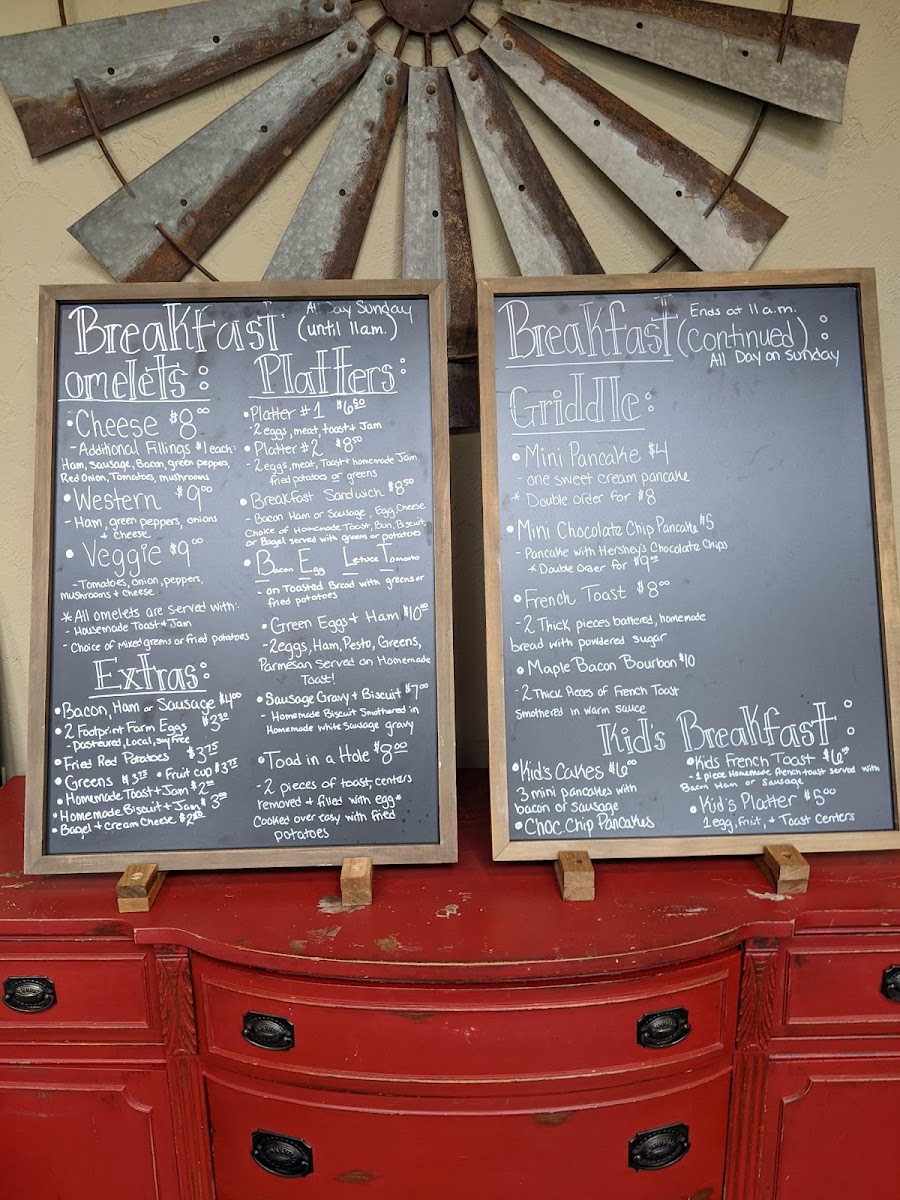 Breakfast
All Day Sunday
(until 11am.)
omelets:
• Cheese $8.00
- Additional Fillings $1 each:
Ham, Sausage, Bacon, green peppers,
Red Onion, Tomatoes, mushrooms
• Western $9.00
- Ham, green peppers, onions
+ cheese
• Veggie $9.00
- Tomatoes, onion, peppers,
mushrooms + cheese
* All omelets are served with:
- Housemade Toast + Jam
- Choice of mixed greens or fried potatoes
Extras:
• Bacon, Ham or Sausage $4.00
• 2 Footprint Farm Eggs
- pastured, local, soy free
• Fried Red Potatoes $3.75
• Greens $3.75 • Fruit cup $3.75
• Homemade Toast + Jam
• Homemade Biscuit + Jam
• Bagel + cream Cheese
Platters:
• Platter #1 $6.50
- 2 eggs, meat, toast + Jam
• Platter #2 $8.50
- 2 eggs, meat, Toast + homemade Jam
fried potatoes or greens
• Breakfast Sandwich $8.50
- Bacon Ham or Sausage, Egg, Cheese
Choice of Homemade Toast, Bun, Biscuit
or Bagel served with greens or potatoes
• Bacon Egg Letuce Tomato
- on Toasted Bread with greens or
fried potatoes
• Green Eggs + Ham $10.00
- 2 eggs, Ham, Pesto, Greens,
Parmesan served on Homemade
Toast!
• Sausage Gravy + Biscuit $7.00
- Homemade Biscuit Smothered in
Homemade white sausage gravy
• Toad in a Hole $8.00
- 2 pieces of toast, centers
removed + filled with egg*
Cooked over easy with fried
potatoes
Breakfast (Continued):
Ends at 11 a.m.
All Day on Sunday
Griddle:
• Mini Pancake $4
- one sweet cream pancake
* Double order for $8
• Mini Chocolate Chip Pancake $5
- Pancake with Hershey's Chocolate Chips
* Double Order for
• French Toast $8.00
- 2 Thick pieces battered, homemade
bread with powdered sugar
• Maple Bacon Bourbon $10
- 2 Thick Pieces of French Toast
Smothered in warm sauce
Kid's Breakfast:
• Kid's Cakes $6.00
3 mini pancakes with
bacon or sausage
• Choc. Chip Pancakes
• Kids French Toast
- 1 piece Homemade french toast served with
Bacon Ham or Sausage
• Kid's Platter
1 egg, fruit, + Toast Centers